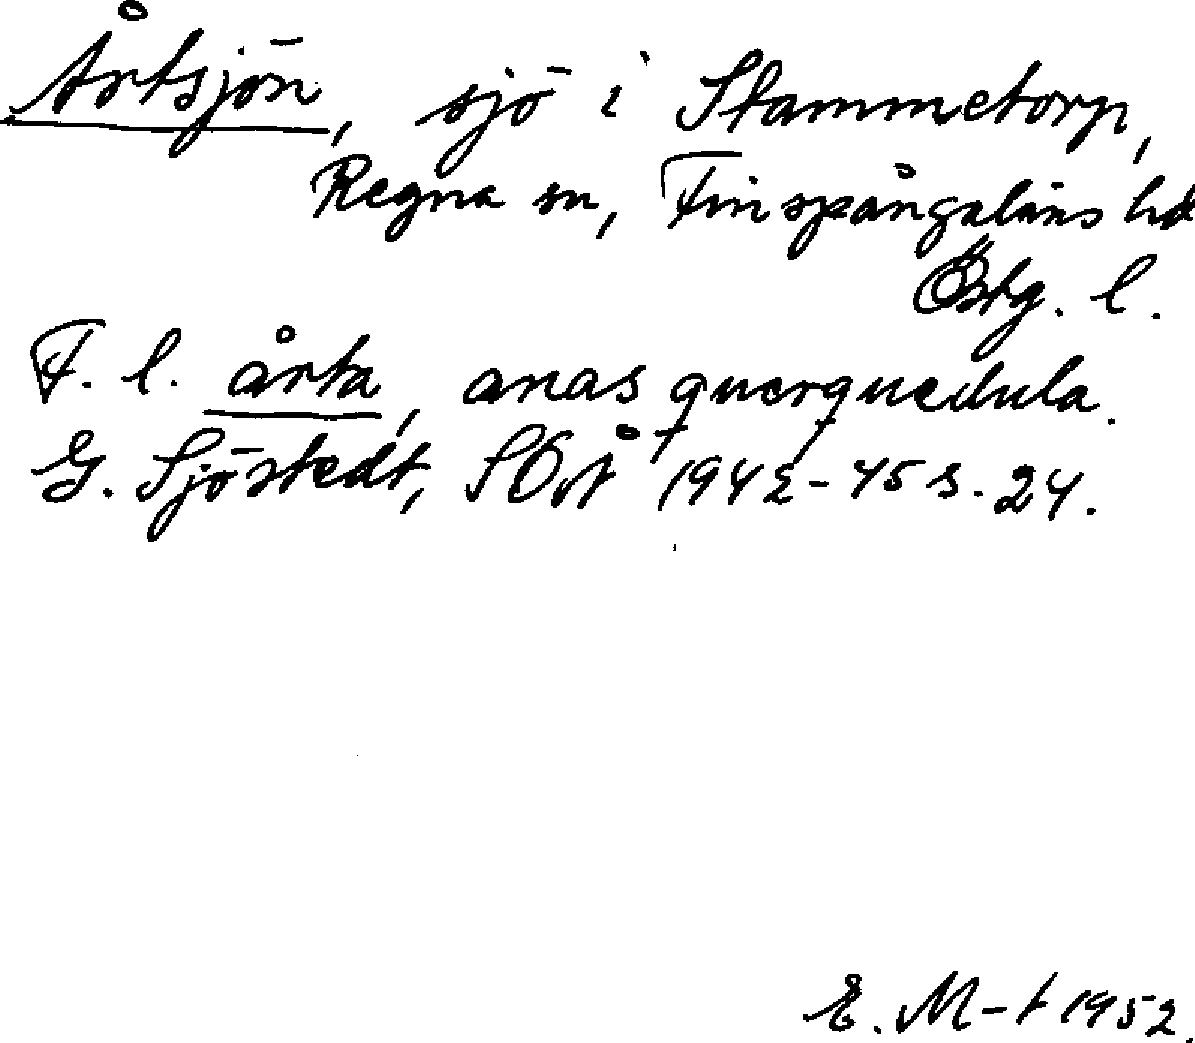 Årtsjön, sjö i Stammetorp,
Regna sn, Finspångaläns hd
Östg. l.
F. l. årta, anas querquedula.
G. Sjöstedt, SOÅ 1942-45 s. 24.
E. M-t 1952.